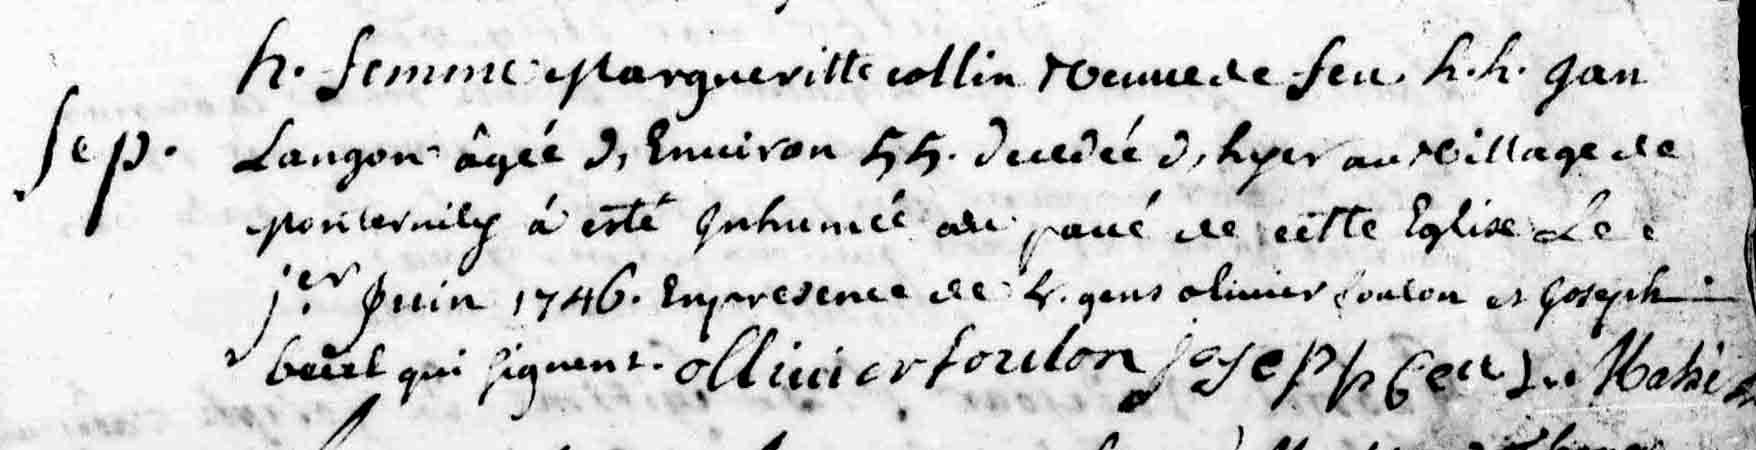 h. femme Margueritte collin veuve de feu. h.h. Jan
Sep. Langon âgée d, Environ 55. decedée d, hyer au village de
à esté Inhumée au pavé de cette Eglise Le
jer. Juin 1746. En presence de h. gens olivier foulon et Joseph
becel qui signent. ollivier foulon joseph becel